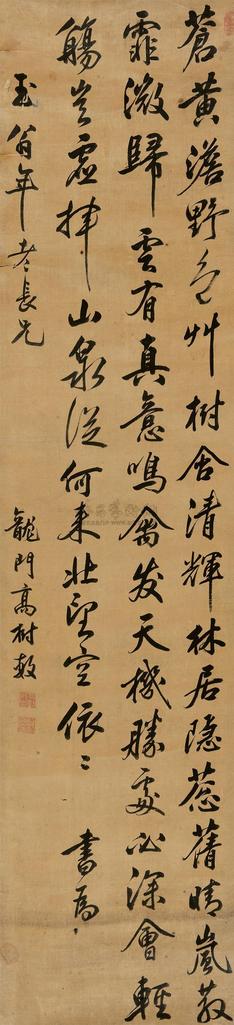 蒼黃澹野色艸樹含清輝林居隐蔥蒨晴嵐散
霏微歸雲有真意鳴禽发天機勝處必深會輕
觴豈虛揮山泉從何来北望空依〻 書爲
玉翁年老長兄
龍門高樹敖